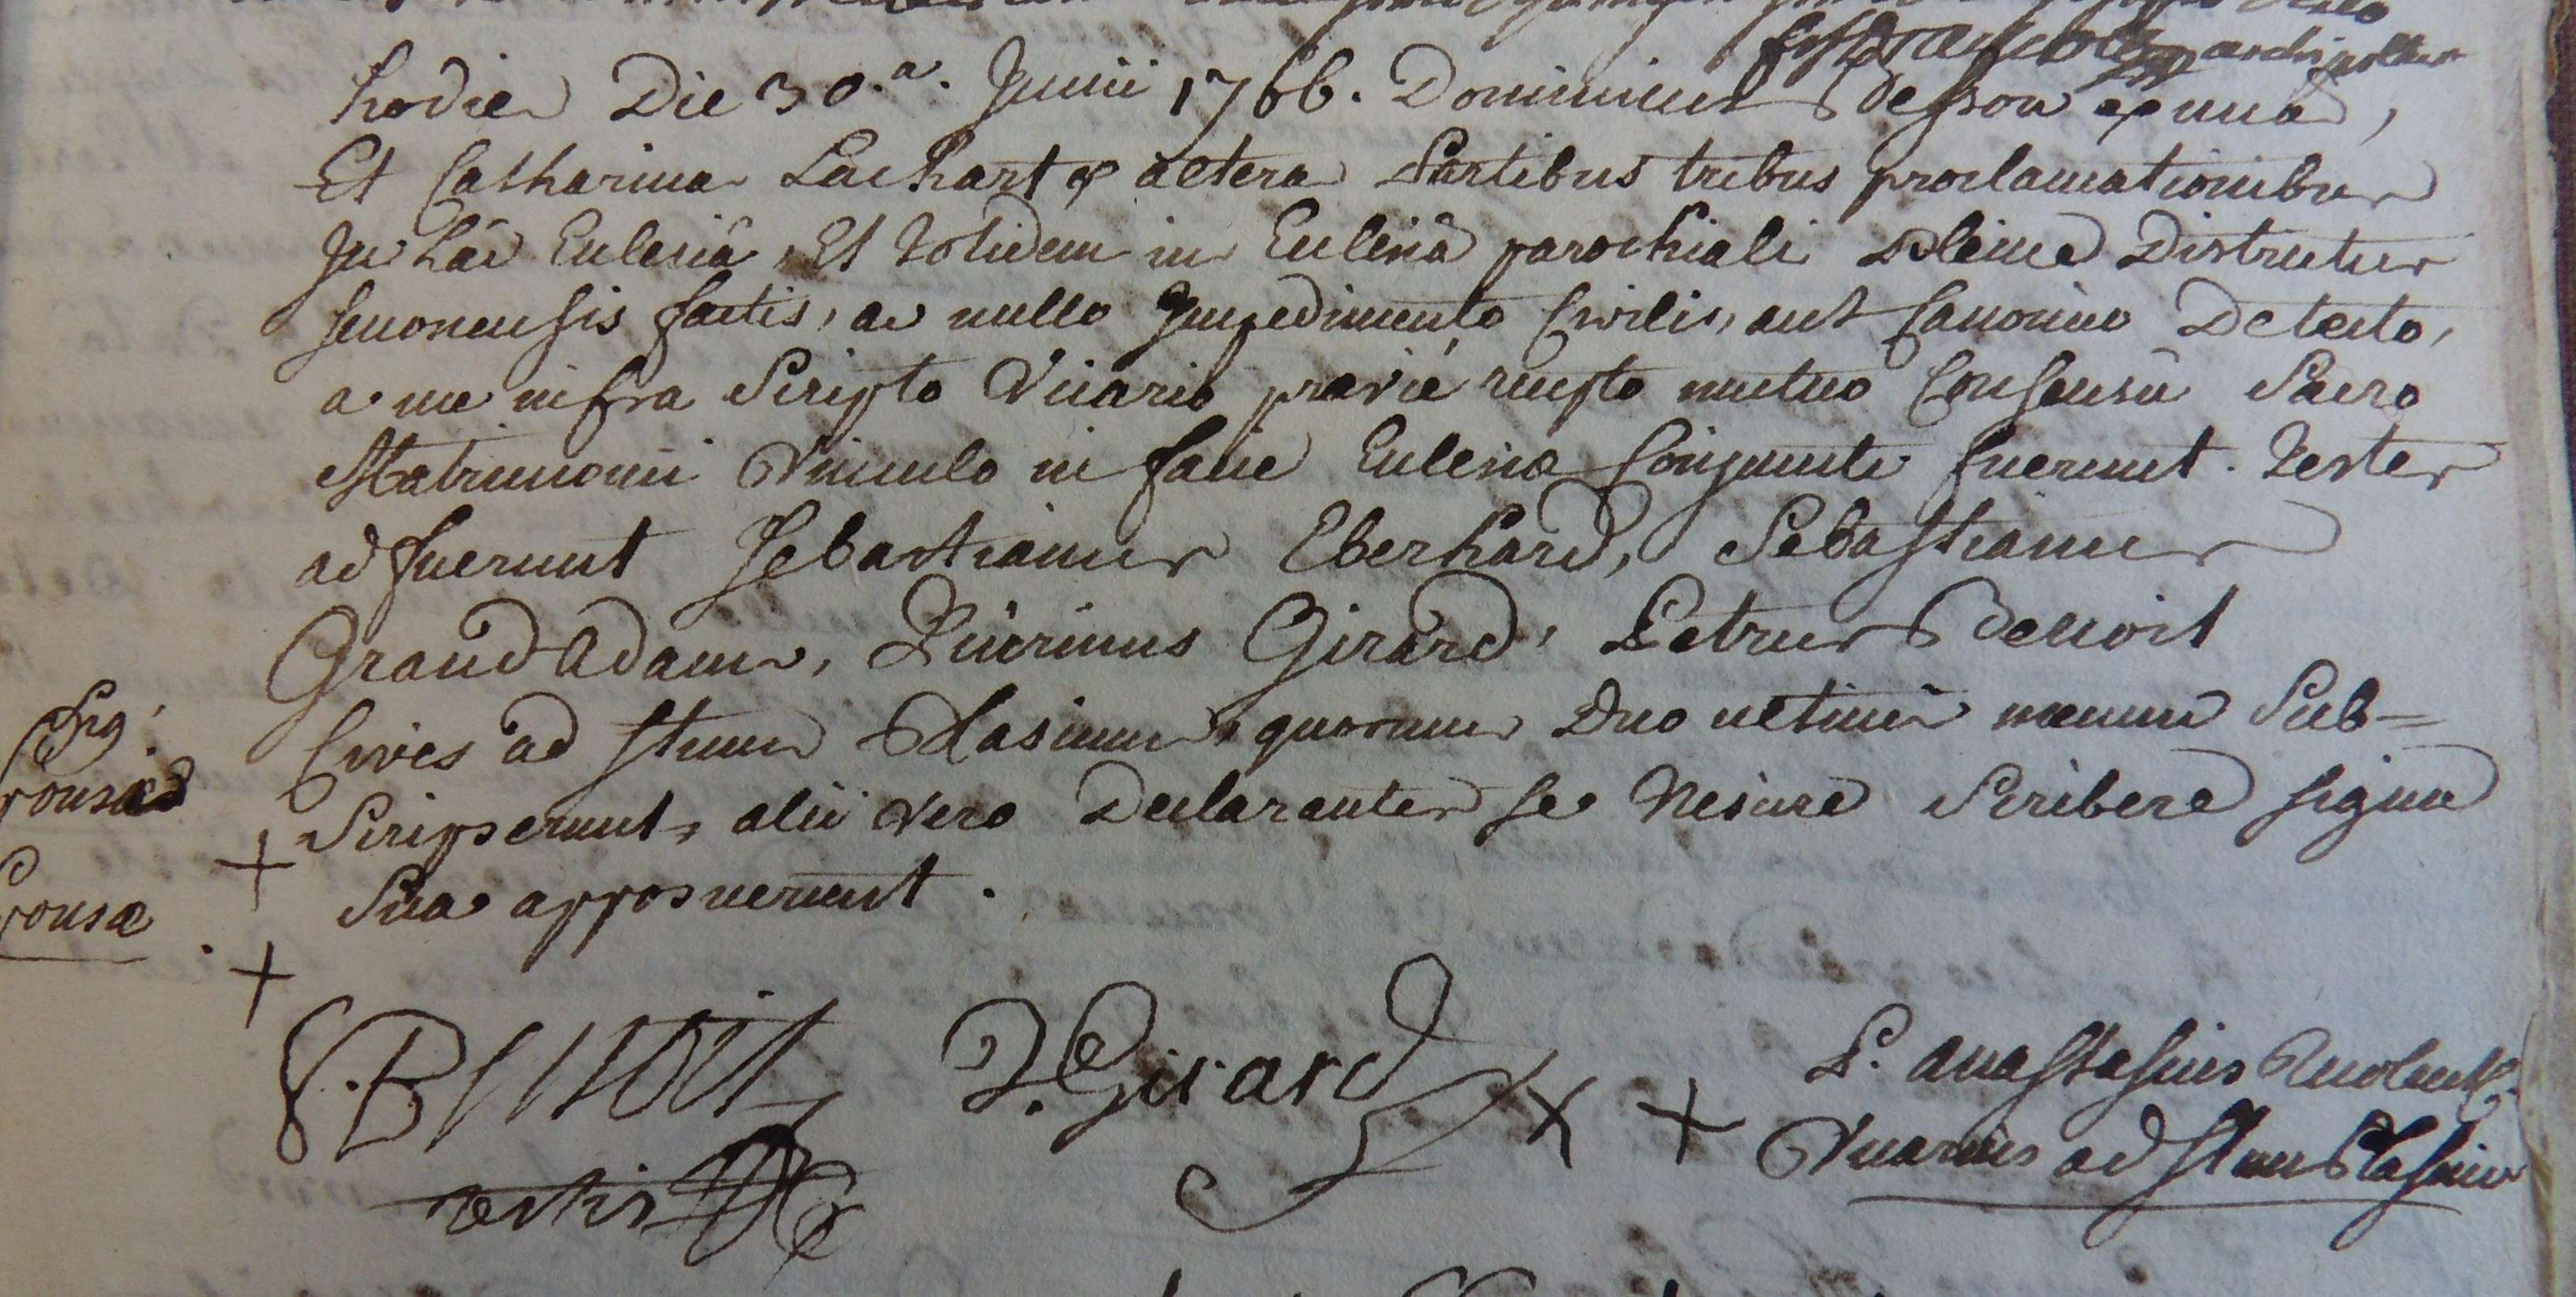 hodie Die 30.a Junii 1766. Dominicus Besson ex unâ,
Et Catharina Lachart ex altera Partibus tribus proclamationibus
In hac Eclesiâ, Et totidem in Eclesiâ parochiali Districtus
senonensis factis, ac nullo Impedimento Civili, aut Canonico Detecto,
a me infra Scripto Vicario prævié recepto mutuo Consensû Sacro
Matrimonii Vinculo in facie Eclesiæ Conjuncti fuerunt. Testes
adfuerunt Sebastianus Eberhard, Sebastianus
Grand Adam, Quirinus Girard, Petrus Benoit
Cives ad stum Blasium, quorum Duo ultimi manu Sub=
Scripserunt, alii vero Declarantes se Nescire Scribere signa
Sua apposuerunt.
Sig:
ponsi +
ponsæ +
P. Benoit Q. Girard + +
testis
P. Anastasius
Vicarius ad stum Blasium